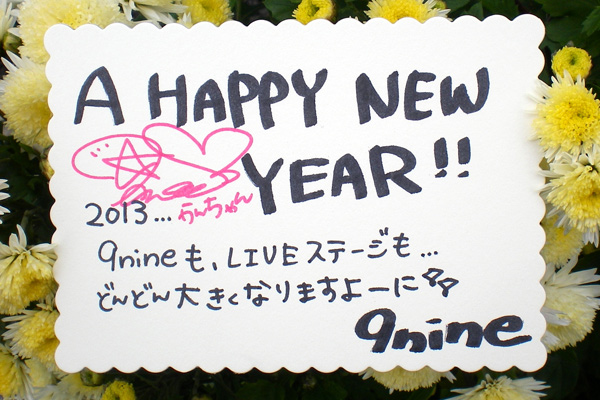 A HAPPY NEW
YEAR!!
2013... うんちゃん
9nineも、LIVEステージも...
どんどん大きくなりますよーに
9nine